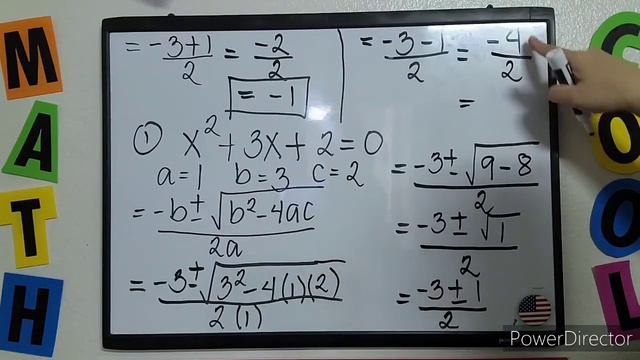 MATH
= (-3+1)/2 = -2/2
= -1
= (-3-1)/2 = -4/2
=
① x² + 3x + 2 = 0
a = 1 b = 3 c = 2
= (-b ± √(b² - 4ac))/2a
= (-3 ± √(3² - 4(1)(2)))/2(1)
= (-3 ± √(9 - 8))/2
= (-3 ± √1)/2
= (-3 ± 1)/2
COOL
PowerDirector